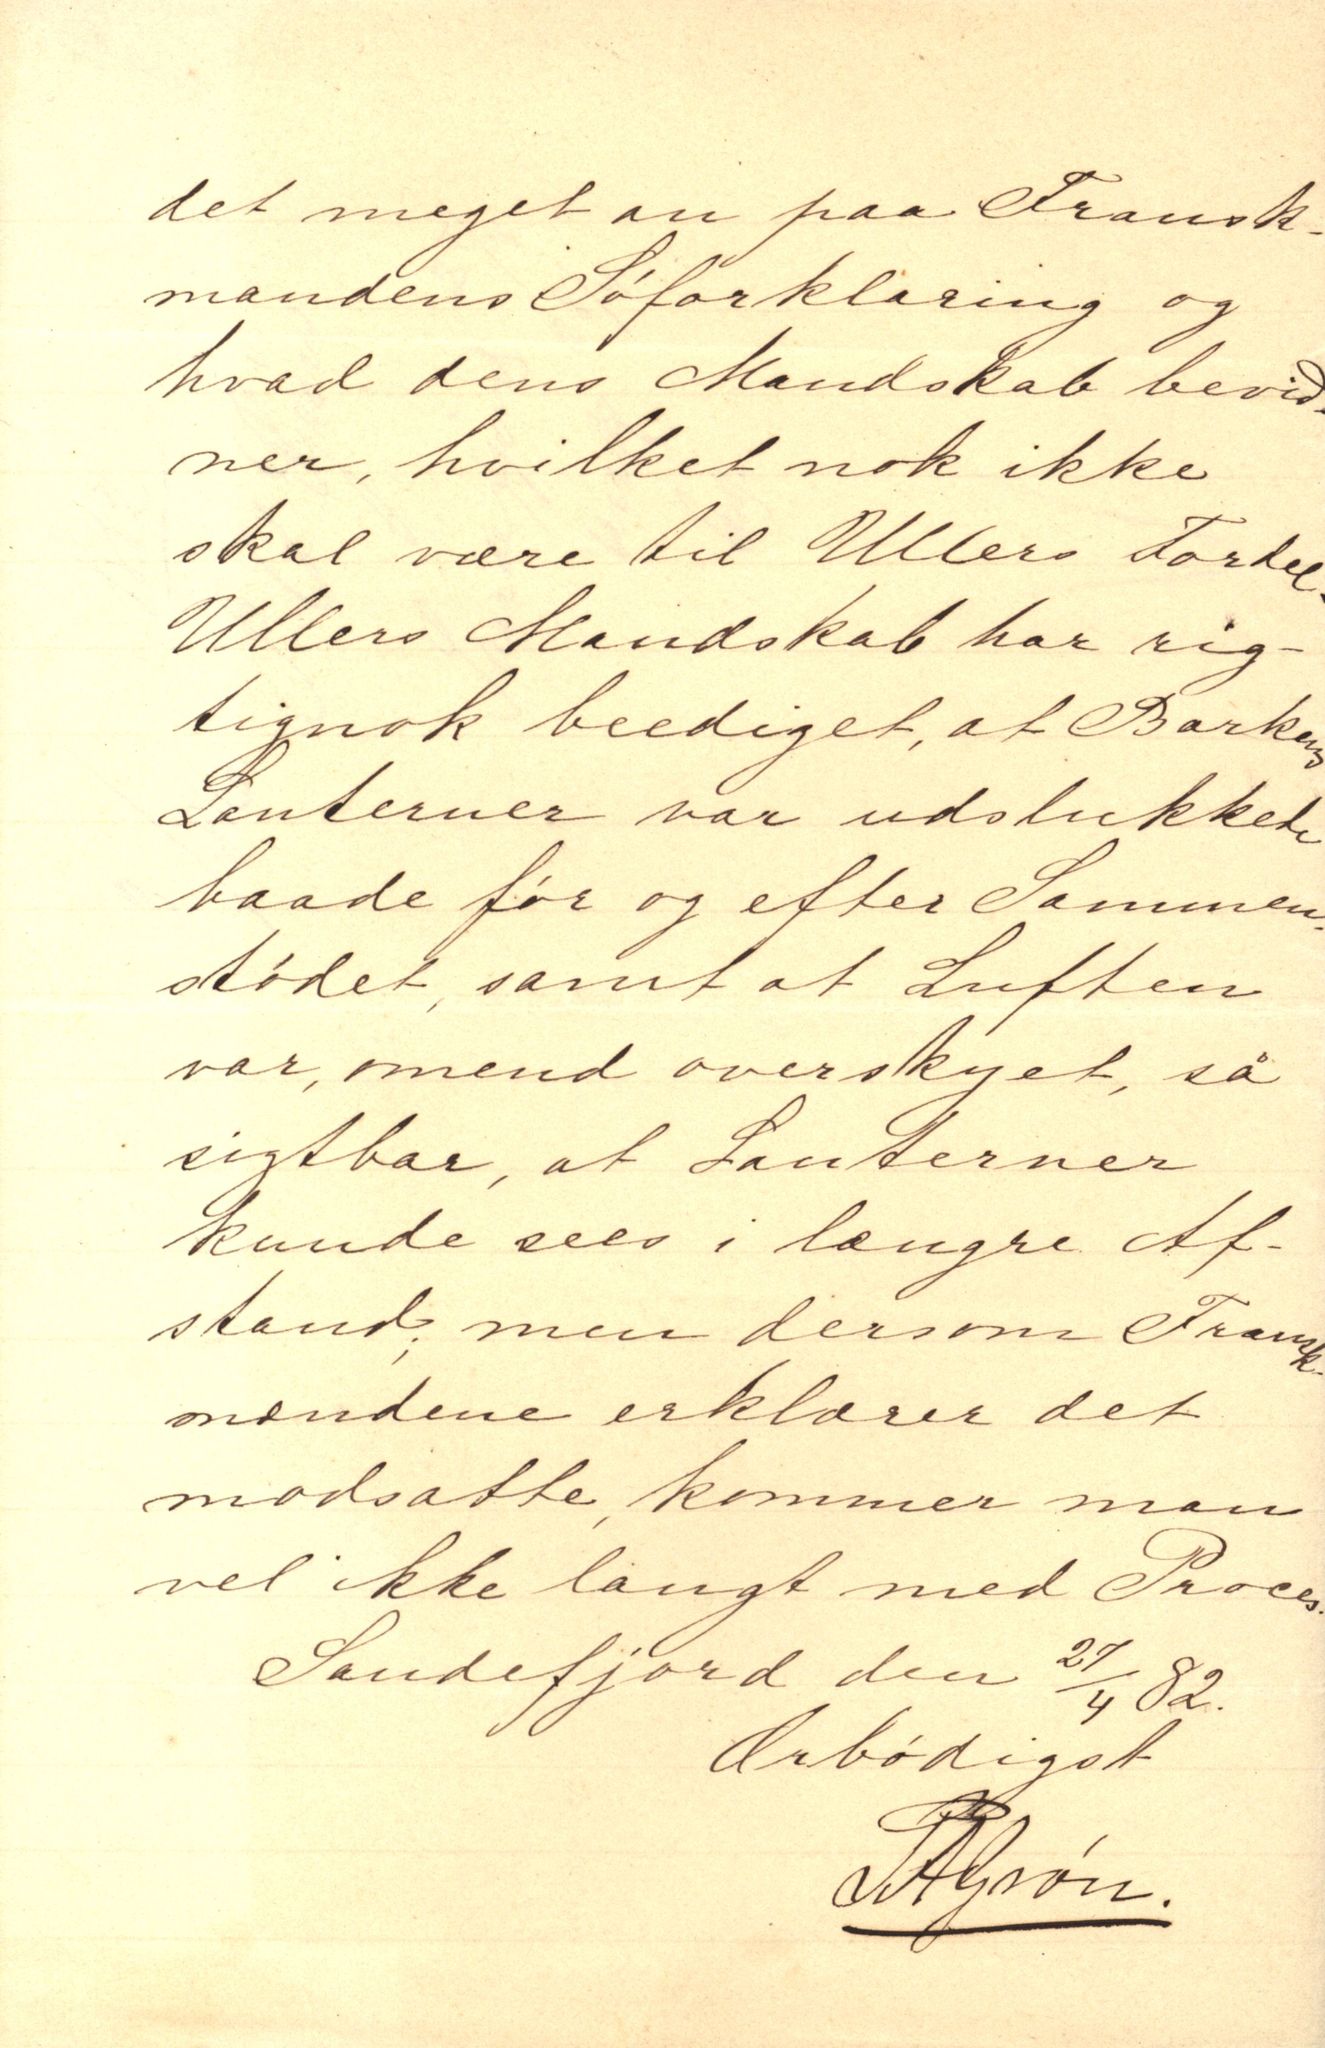 det meget an paa Fransk-
mandens Søforklaring og
hvad dens Mandskab bevid-
ner, hvilket nok ikke
skal være til Ullers Fordel.
Ullers Mandskab har rig-
tignok beediget, at Barkens
Lanterner var udslukkede
baade før og efter Sammen-
stødet, samt at Luften
var, omend overskyet, så
sigtbar, at Lanterner
kunde sees i længre Af-
stand; men dersom Fransk-
mændene erklærer det
modsatte, kommer man
vel ikke langt med Proces.
Sandefjord den 27/4 82.
Ærbødigst